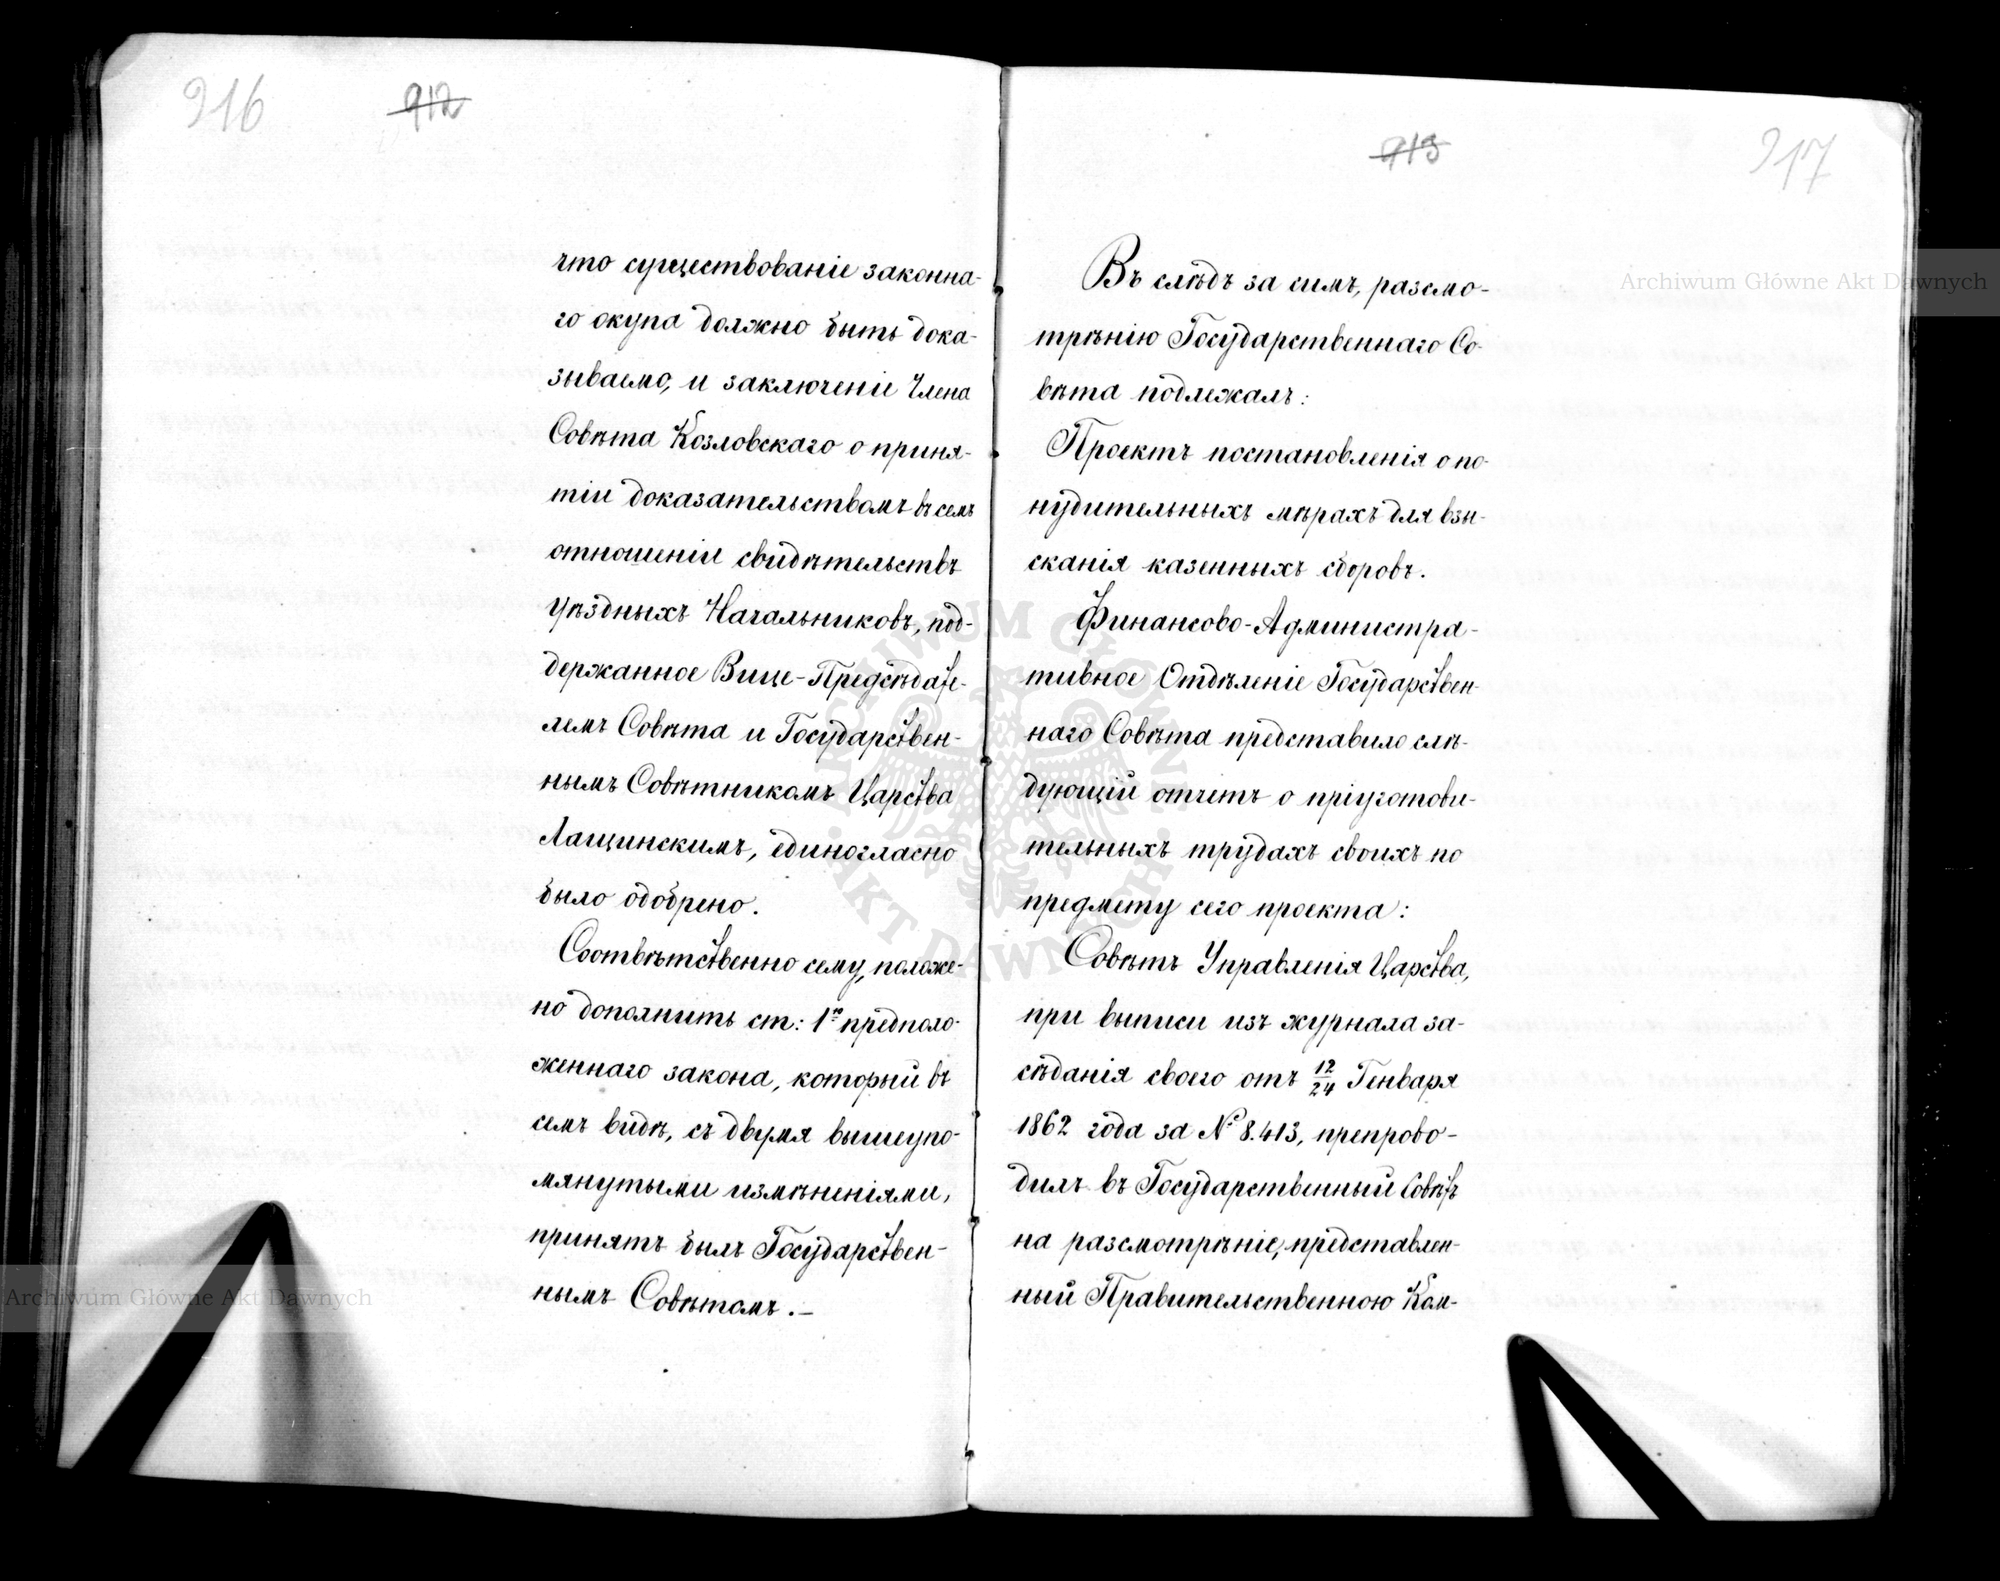 916 912
что существованіе законна-
го окупа должно быть дока-
зываемо, и заключеніе Члена
Совѣта Козловскаго о приня-
тіи доказательствомъ въ семъ
отношеніи свидѣтельствъ
Уѣздныхъ Начальниковъ, под-
держанное Вице-Предсѣдате-
лемъ Совѣта и Государствен-
нымъ Совѣтникомъ Царства
Лащинскимъ, единогласно
было одобрено.
Соотвѣтственно сему, положе-
но дополнить ст: 1ю предполо-
женнаго закона, который въ
семъ видѣ, съ двумя вышеупо-
мянутыми измѣненіями,
принятъ былъ Государствен-
нымъ Совѣтомъ.—
913 917
Въ слѣдъ за симъ, разсмо-
трѣнію Государственнаго Со-
вѣта подлежалъ:
Проектъ постановленія о по-
нудительныхъ мѣрахъ для взы-
сканія казенныхъ сборовъ.
Финансово-Администра-
тивное Отдѣленіе Государствен-
наго Совѣта представило слѣ-
дующій отчетъ о пріуготови-
тельныхъ трудахъ своихъ по
предмету сего проекта:
Совѣтъ Управленія Царства,
при выписи изъ журнала за-
сѣданія своего отъ 12/24 Генваря
1862 года за № 8.413, препрово-
дилъ въ Государственный Совѣтъ
на разсмотрѣніе, представлен-
ный Правительственною Ком-
Archiwum Główne Akt Dawnych
Archiwum Główne Akt Dawnych
ARCHIWUM GŁÓWNE
AKT DAWNYCH